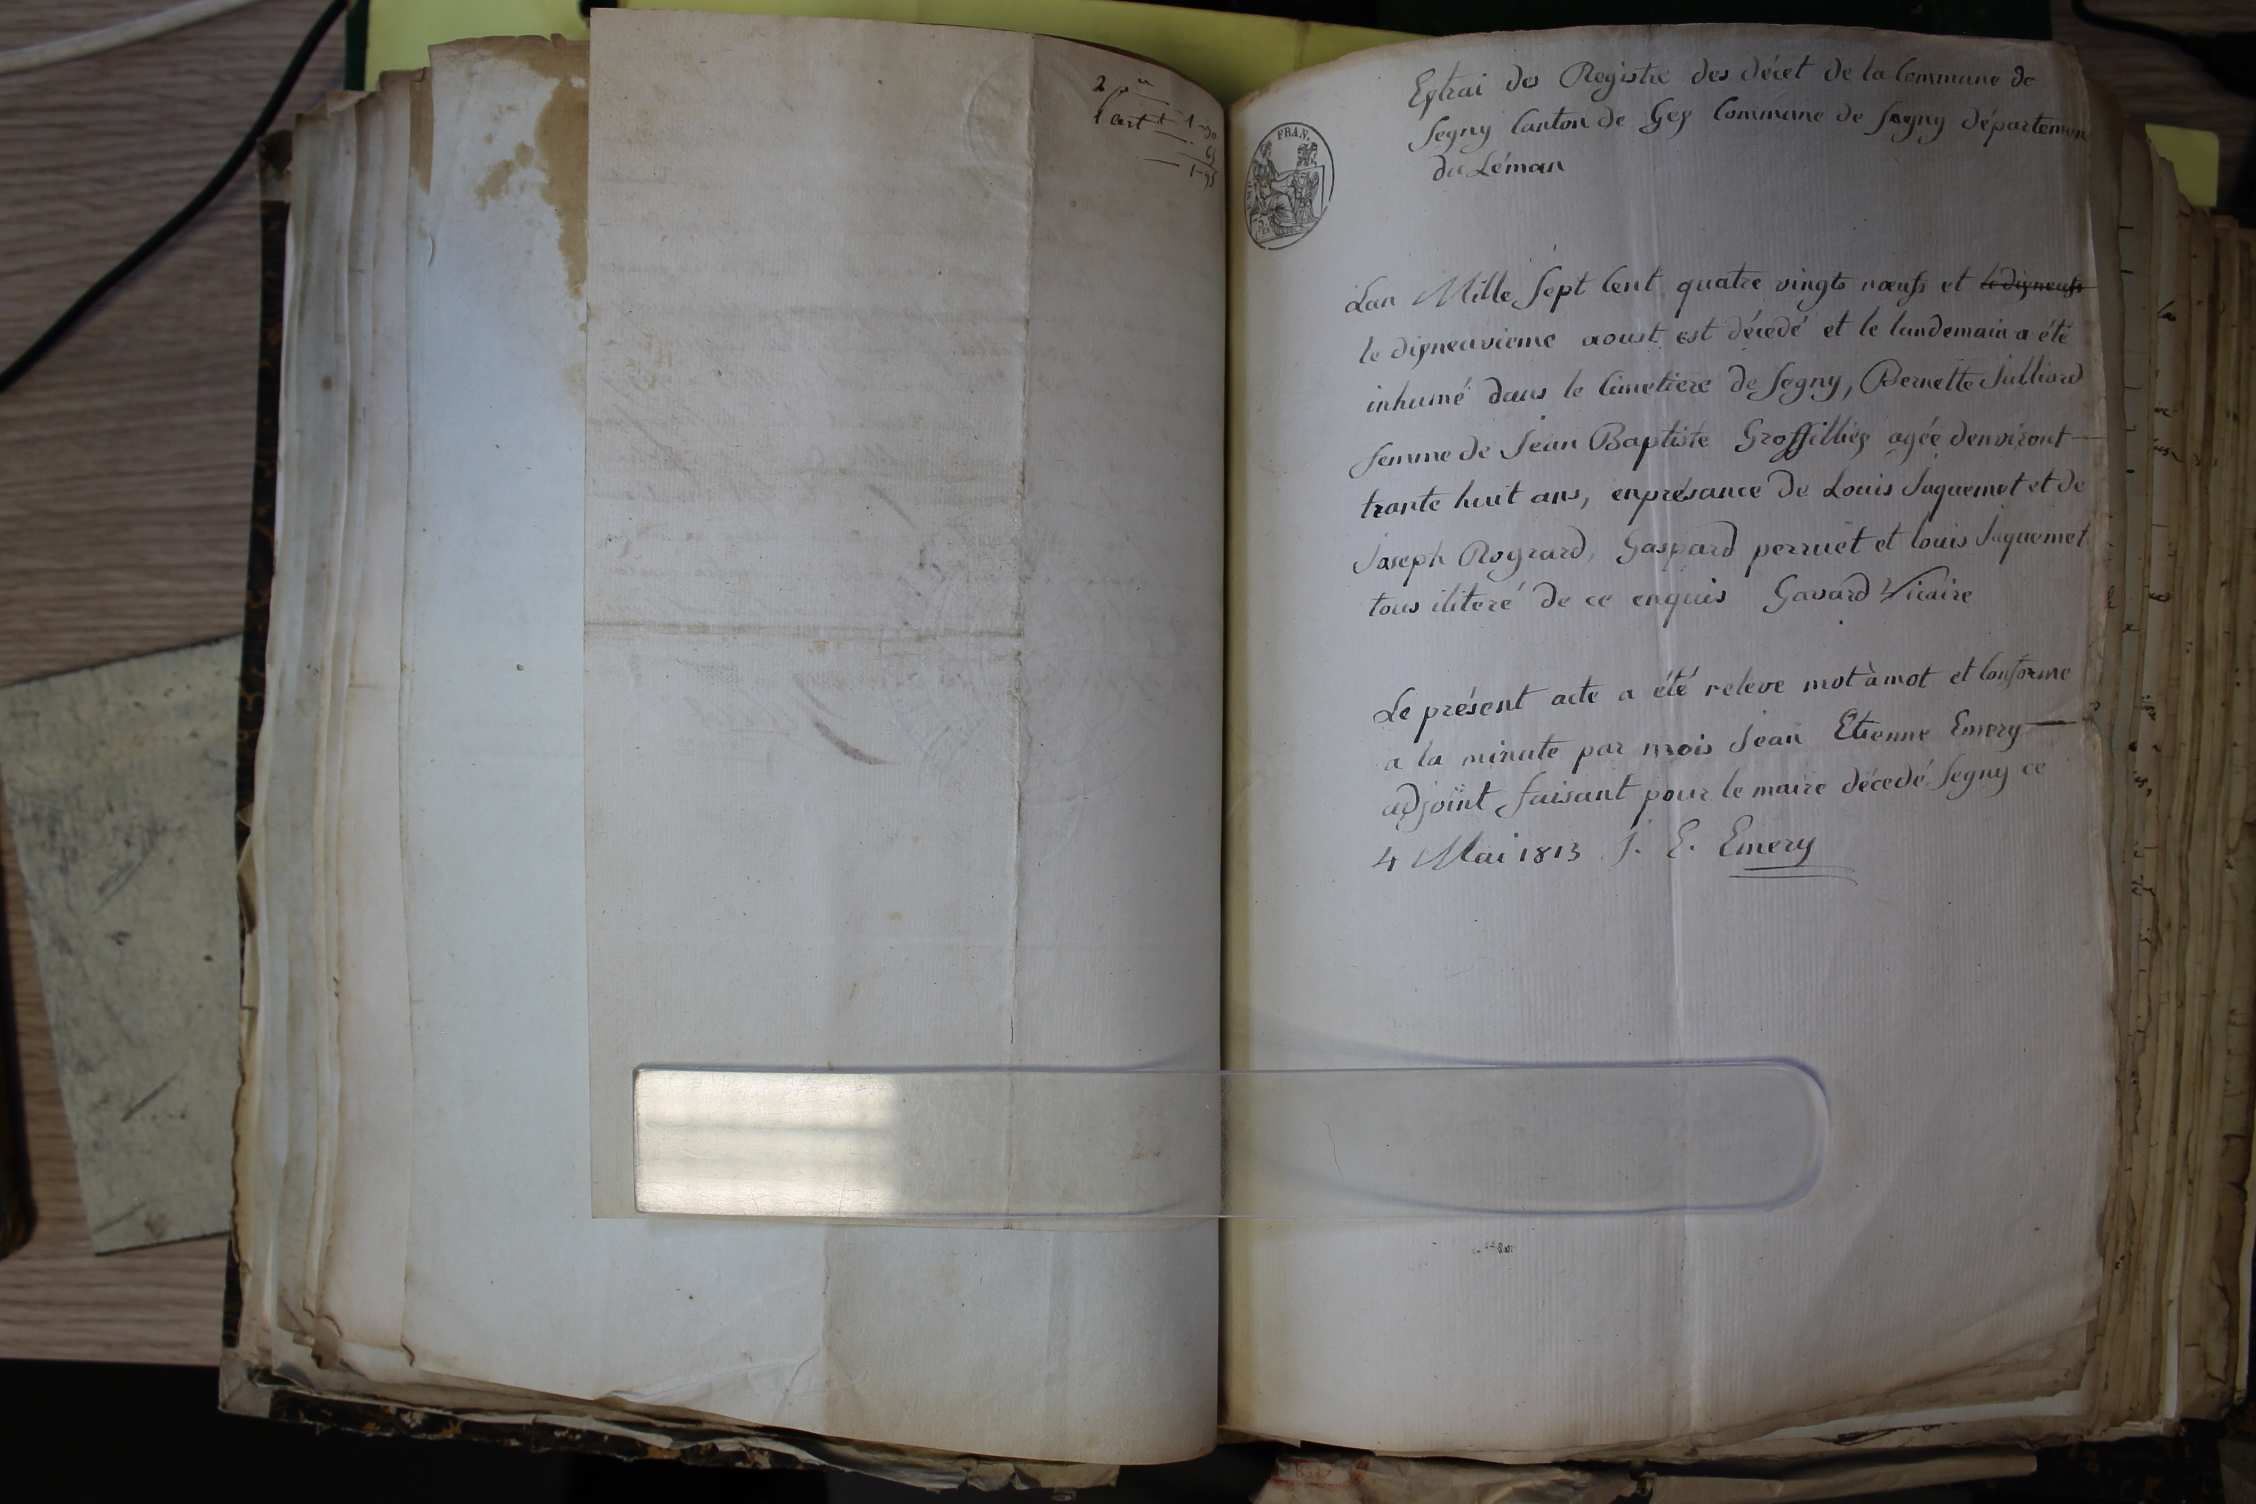 2
1 cert 1-90
1-95
FRAN.
Extrai des Registre des décet de la Commune de
Segny Canton de Gex Commune de Segny département
du Léman
Lan Mille Sept Cent quatre vingts nœufs et le dixneufs
le dixneuvieme aoust est décédé et le landemain a été
inhumé dans le Cimetiere de Segny, Pernette Julliard
femme de Jean Baptiste Groffilliex agée denviront
trante huit ans, enprésance de Louis Jaquemet et de
Joseph Rogrard, Gaspard perruet et louis Jaquemet
tous iliteré de ce enquis Gavard Vicaire
Le présent acte a été releve mot à mot et Conforme
a la minute par mois Jean Etienne Emery
adjoint faisant pour le maire décedé Segny ce
4 Mai 1813 J. E. Emery